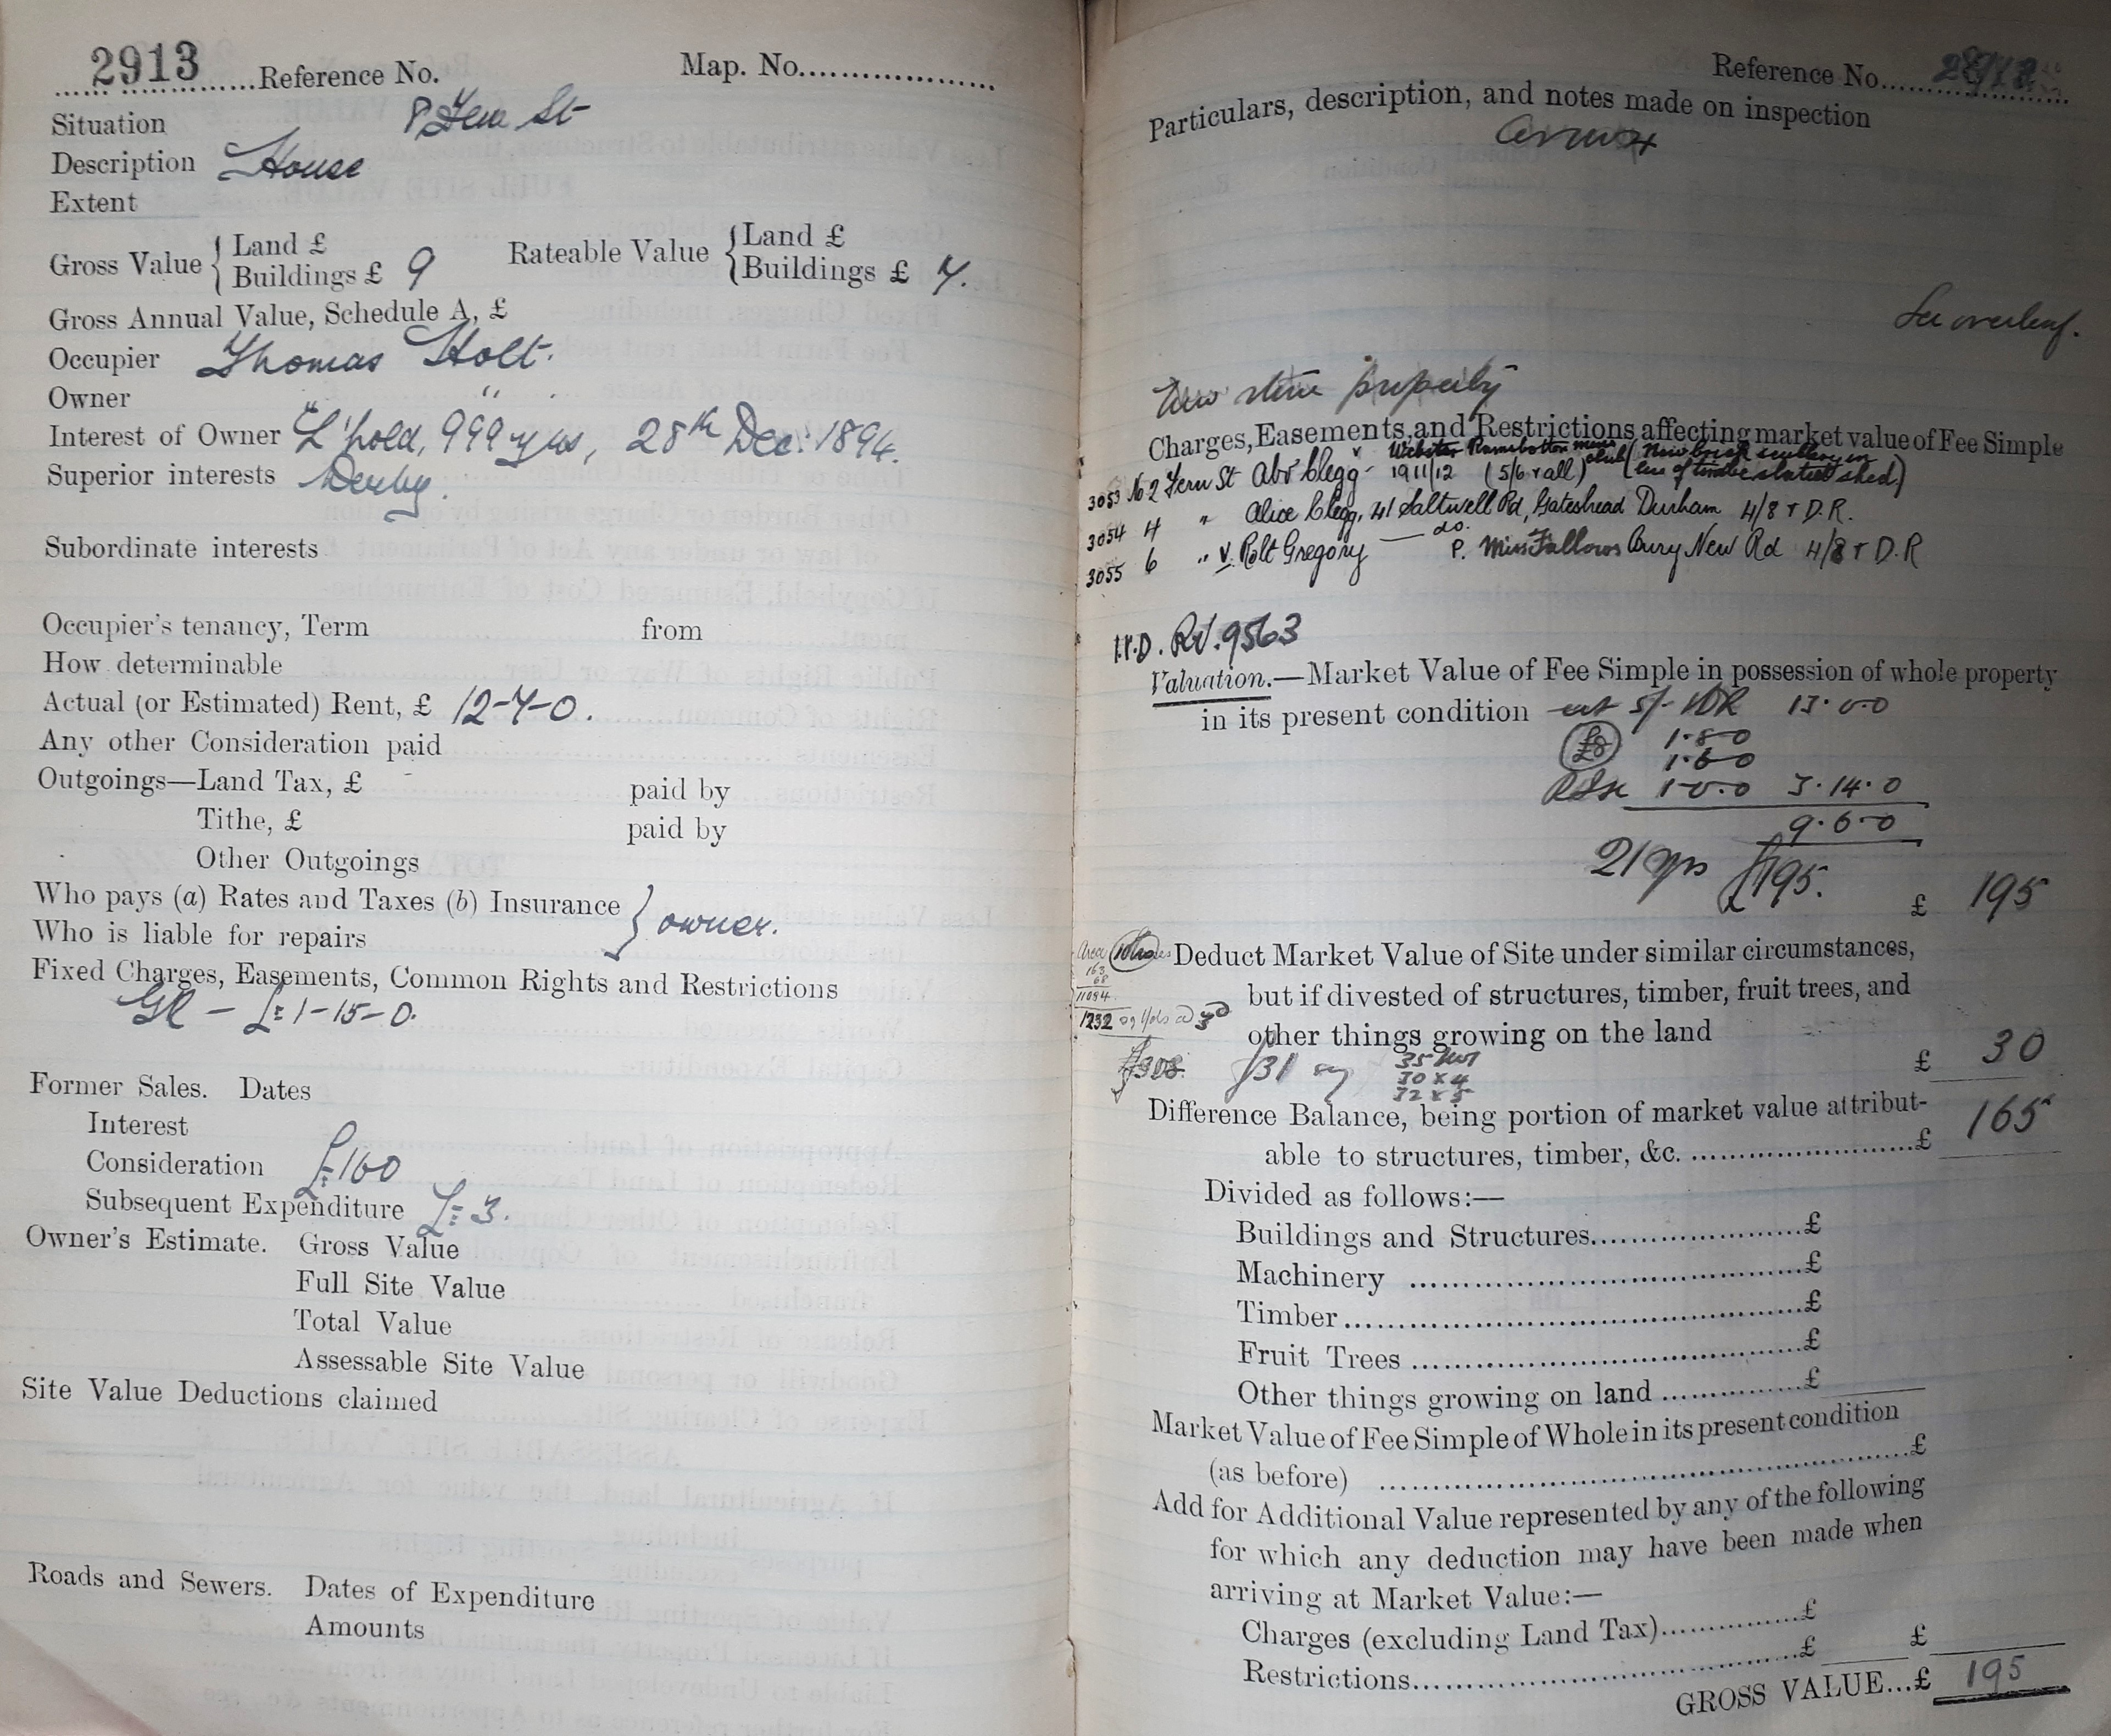 2913 Reference No. Map. No.
Situation 8 Fern St
Description House
Extent
Gross Value { Land £
Buildings £ 9
Rateable Value { Land £
Buildings £ 7.
Gross Annual Value, Schedule A, £
Occupier Thomas Holt.
Owner " "
Interest of Owner L'hold, 999 yrs, 28th Dec: 1894.
Superior interests Derby.
Subordinate interests
Occupier's tenancy, Term from
How determinable
Actual (or Estimated) Rent, £ 12-7-0.
Any other Consideration paid
Outgoings—Land Tax, £ paid by
Tithe, £ paid by
Other Outgoings
Who pays (a) Rates and Taxes (b) Insurance } owner.
Who is liable for repairs
Fixed Charges, Easements, Common Rights and Restrictions
GR - £1-15-0.
Former Sales. Dates
Interest
Consideration £160
Subsequent Expenditure £3.
Owner's Estimate. Gross Value
Full Site Value
Total Value
Assessable Site Value
Site Value Deductions claimed
Roads and Sewers. Dates of Expenditure
Amounts
Reference No.
Particulars, description, and notes made on inspection
See overleaf.
stone property
Charges, Easements, and Restrictions affecting market value of Fee Simple
Webster Ramsbottom (New brick scullery in
3053 No 2 Fern St Abr Clegg - 19/11/12 (5/6 & all) lieu of timber slated shed)
3054 4 " Alice Clegg, 41 Saltwell Rd, Gateshead Durham 4/8 & D.R.
3055 6 " v. Robt Gregory — do. P. Miss Fallows Bury New Rd 4/8 & D.R
9563
Valuation.—Market Value of Fee Simple in possession of whole property
in its present condition at 5/- & DR 13.0.0
£8 1.8.0
1.6.0
1.0.0 3.14.0
9.6.0
21 yrs £195.
£ 195
Area
163
68
11084
1232 sq yds @ 3d
Deduct Market Value of Site under similar circumstances,
but if divested of structures, timber, fruit trees, and
other things growing on the land
£ 30
£308 £31 say
30 x 4
32 x 5
Difference Balance, being portion of market value attribut-
able to structures, timber, &c. £ 165
Divided as follows:—
Buildings and Structures £
Machinery £
Timber £
Fruit Trees £
Other things growing on land £
Market Value of Fee Simple of Whole in its present condition
(as before) £
Add for Additional Value represented by any of the following
for which any deduction may have been made when
arriving at Market Value:—
Charges (excluding Land Tax) £
Restrictions £ £
GROSS VALUE...£ 195